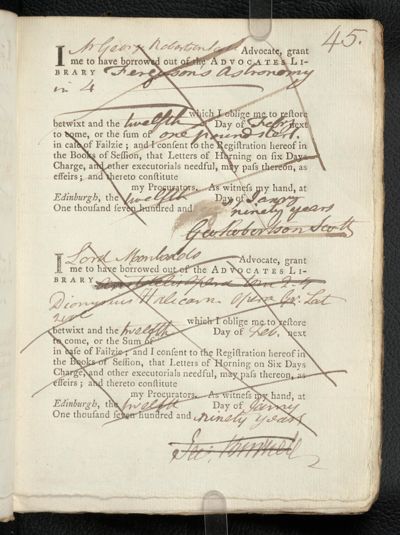 45.
I Mr George Robertson Scott Advocate, grant
me to have borrowed out of the ADVOCATES LI-
BRARY Fergusons Astronomy
in 4
which I oblige me to restore
betwixt and the twelfth Day of Feb. next
to come, or the sum of one pound ster.
in case of Failzie; and I consent to the Registration hereof in
the Books of Session, that Letters of Horning on six Days
Charge, and other executorials needful, may pass thereon, as
effeirs; and thereto constitute
my Procurators. As witness my hand, at
Edinburgh, the twelfth Day of Janry
One thousand seven hundred and ninety years
Geo Robertson Scott
I Lord Monboddo Advocate, grant
me to have borrowed out of the ADVOCATES LI-
BRARY
Dionysius Halicarn. opera Gr. Lat
2 vol
which I oblige me to restore
betwixt and the twelfth Day of Feb. next
to come, or the Sum of
in case of Failzie; and I consent to the Registration hereof in
the Books of Session, that Letters of Horning on Six Days
Charge, and other executorials needful, may pass thereon, as
effeirs; and thereto constitute
my Procurators. As witness my hand, at
Edinburgh, the twelfth Day of Janry
One thousand seven hundred and ninety years